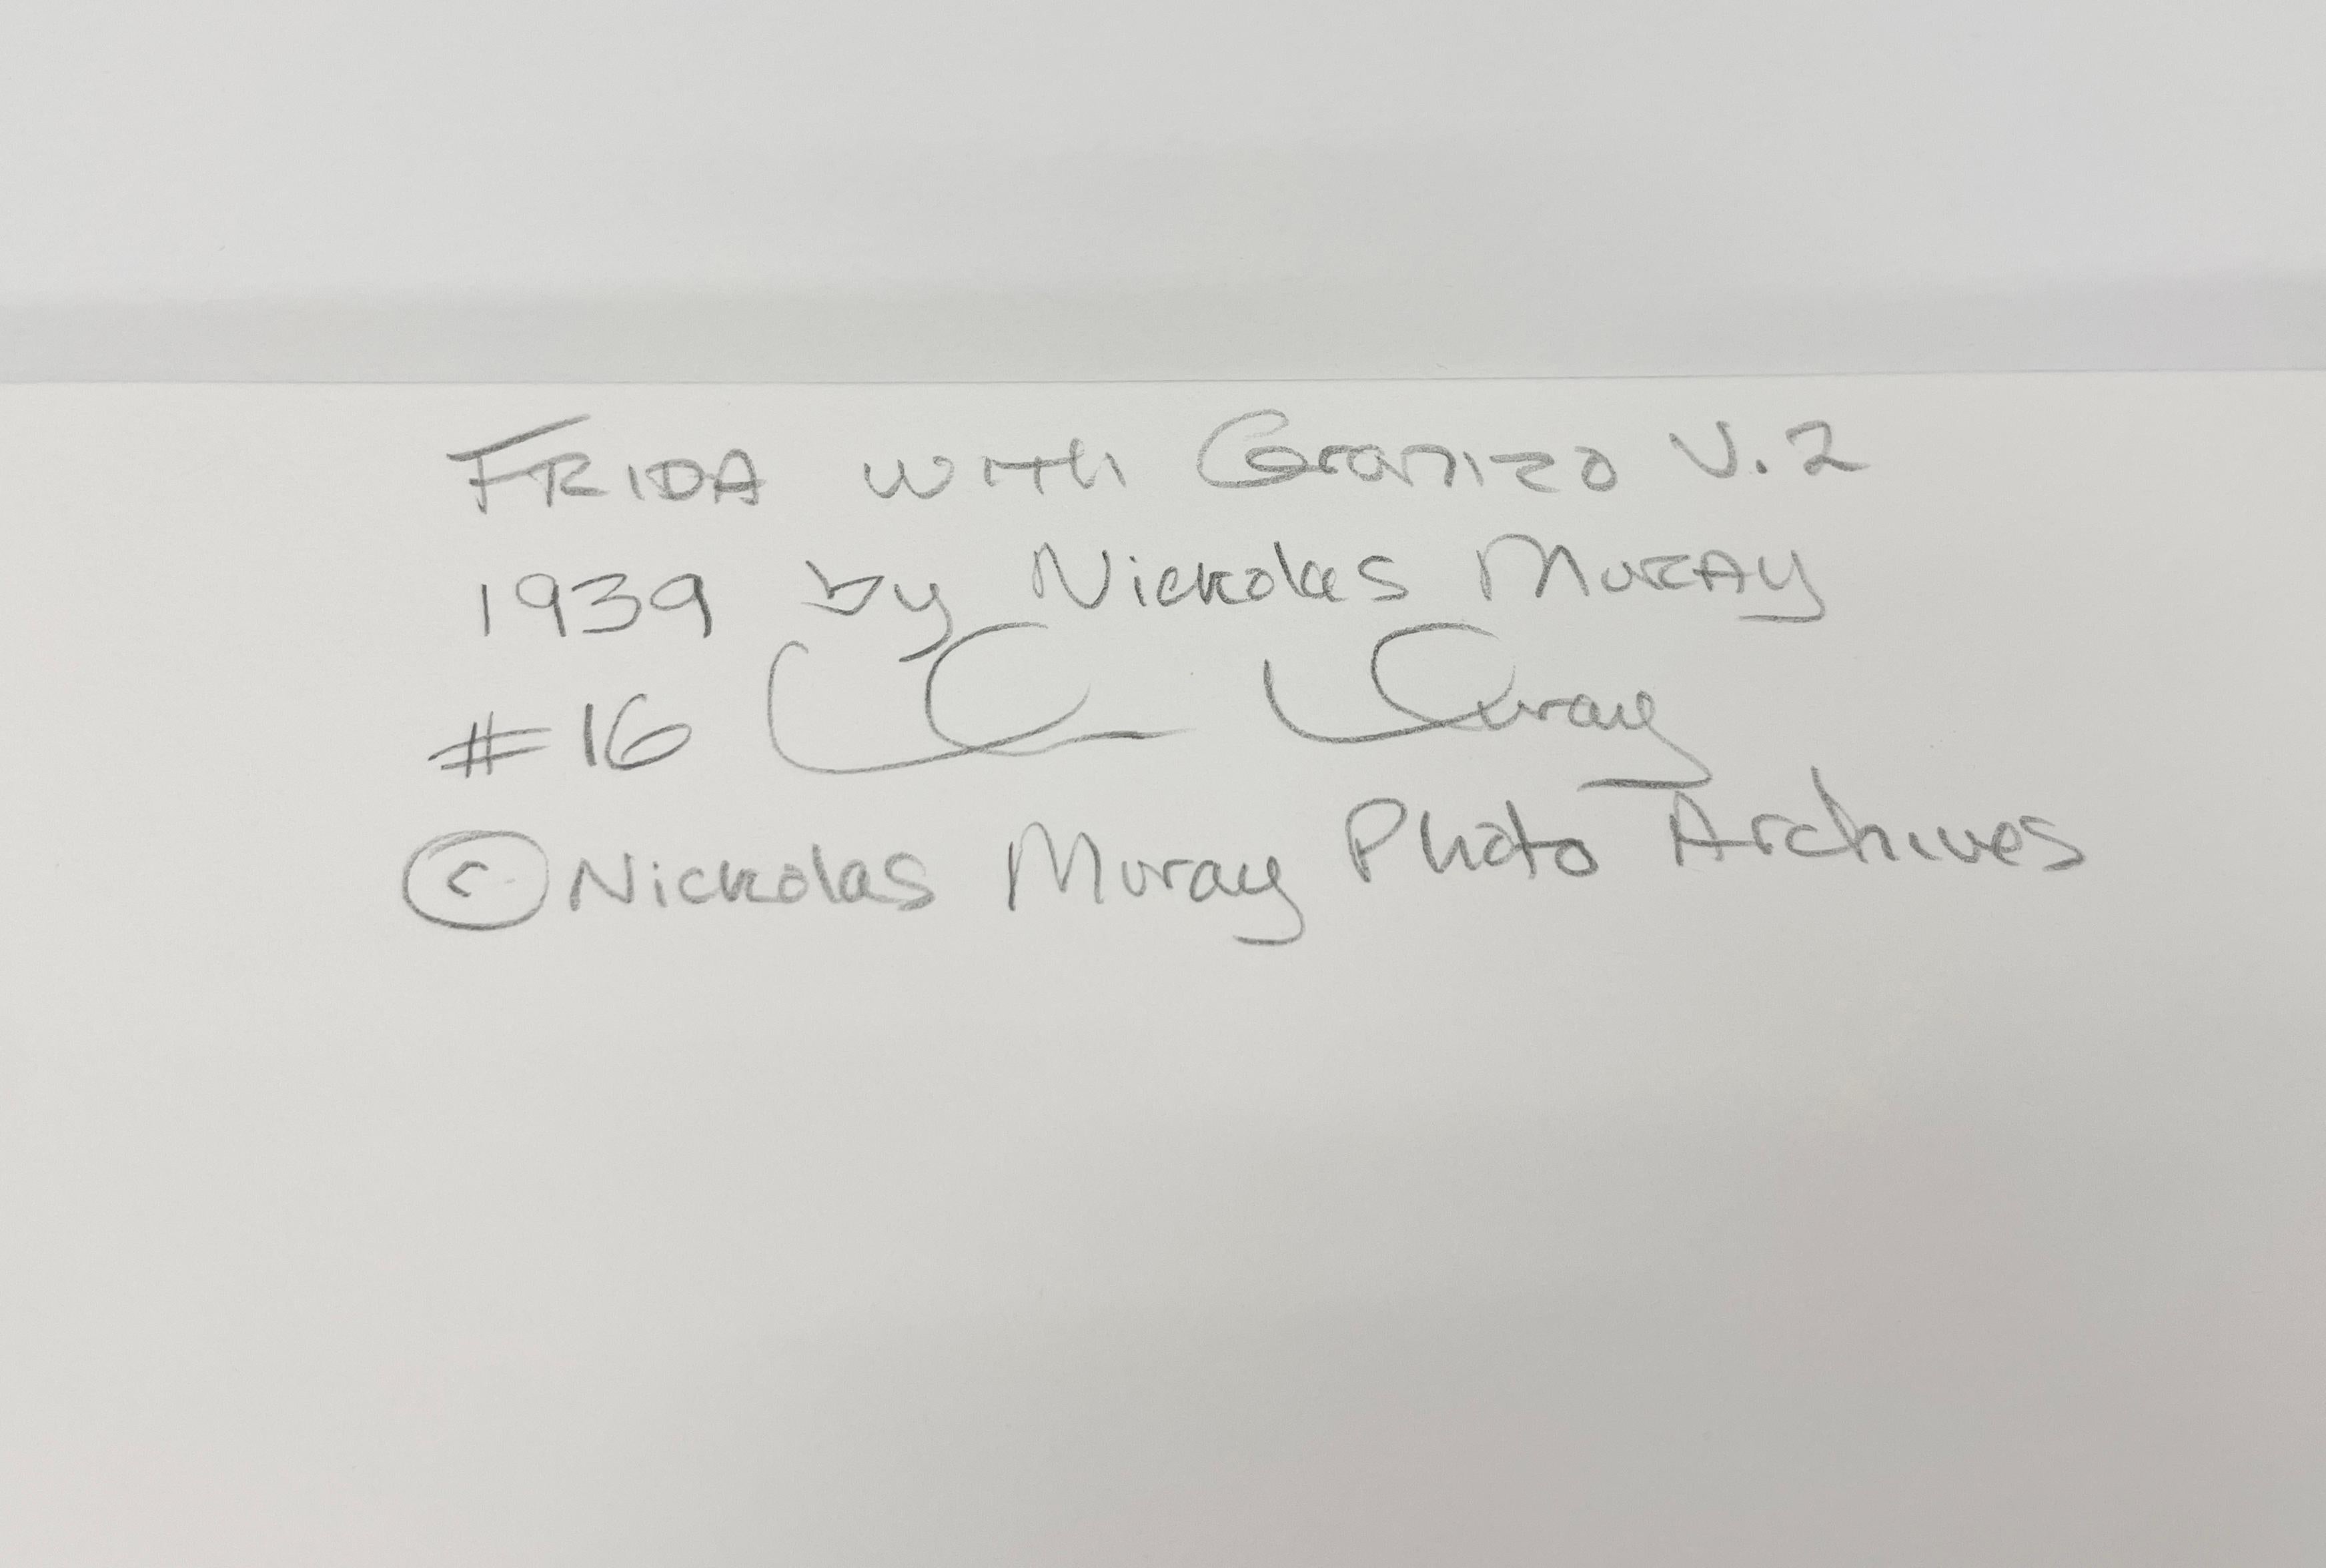 FRIDA with Granizo V.2
1939 by Nickolas MURAY
#16 Muray
©Nickolas Muray Photo Archives